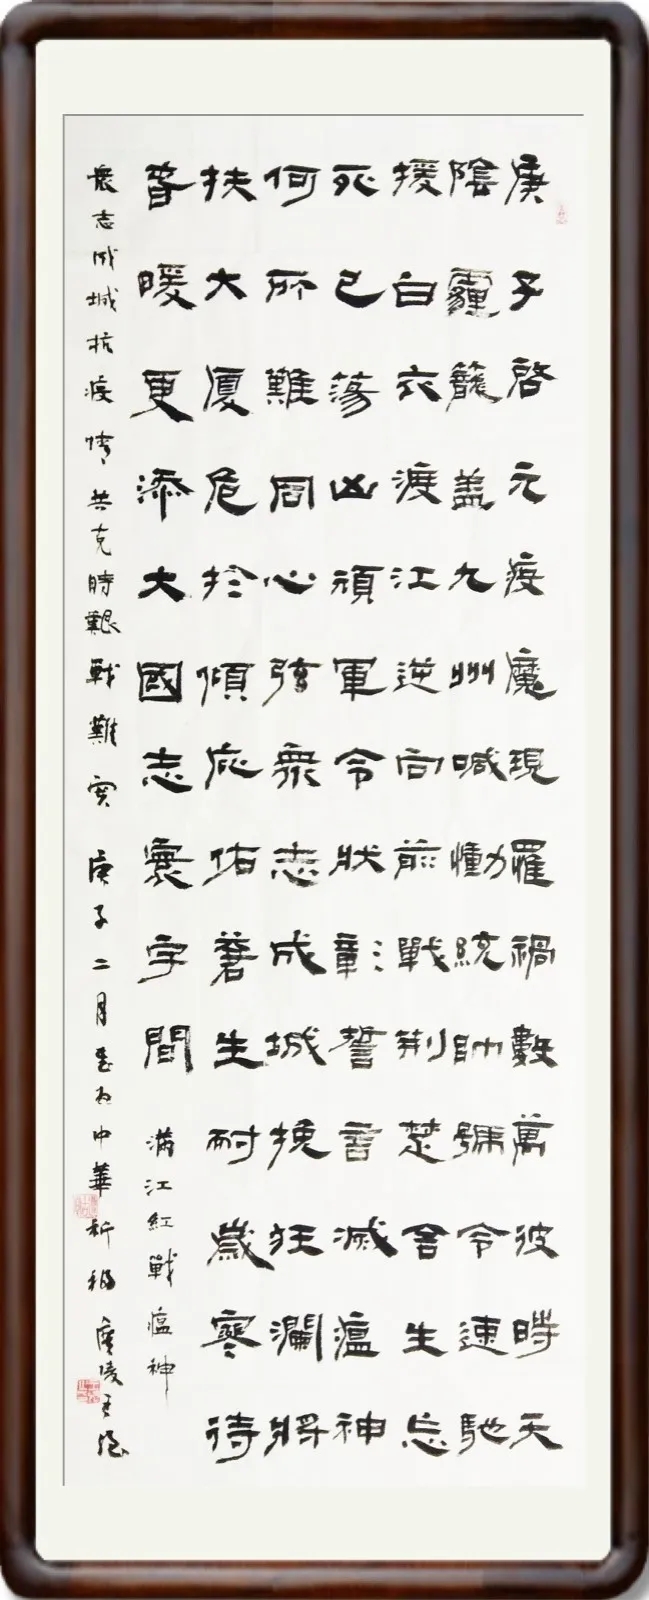 庚子啓元疫魔現羅禍數萬彼時天
陰霾籠盖九州喊慟統帥號令速馳
援白衣渡江逆向前戰荆楚舍生忘
死已蕩凶頑軍令狀彰誓言滅瘟神
何所難同心弦衆志成城挽狂瀾將
扶大厦危於傾應佑蒼生耐歲寒待
春暖更添大國志寰宇間
满江紅戰瘟神
衆志成城抗疫情共克時艱戰難 庚子二月 中華祈福 廣陵